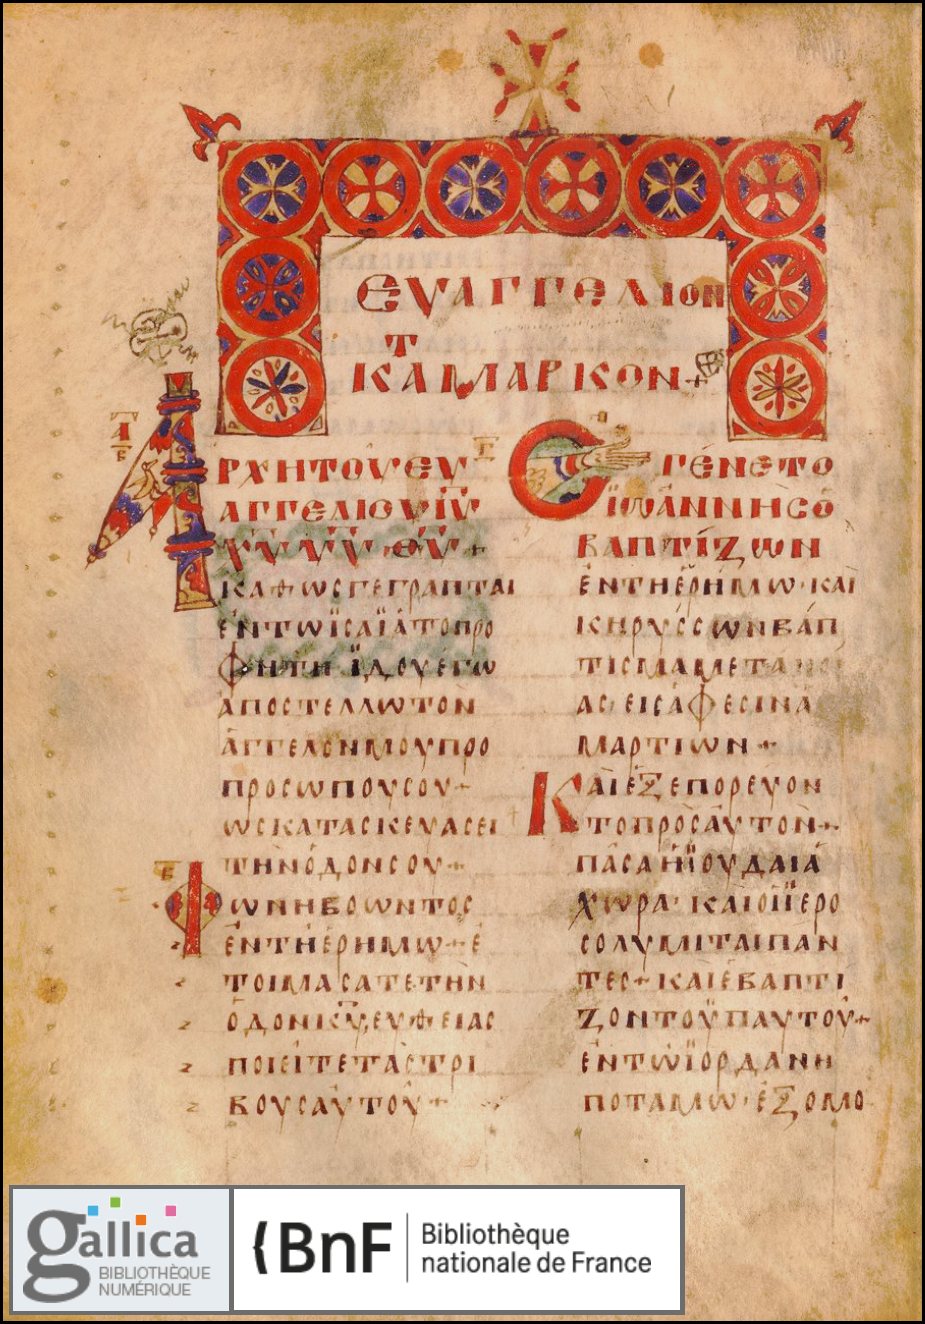 ΕΥΑΓΓΕΛΙΟΝ
ΚΑΤ ΜΑΡΚΟΝ+
ΑΡΧΗ ΤΟΥ ΕΥ
ΑΓΓΕΛΙΟΥ ΙΥ
ΧΥ ΥΥ ΘΥ+
ΚΑΘΩΣ ΓΕΓΡΑΠΤΑΙ
ἐΝ ΤῶΙΣΑΐᾳ ΤΩ ΠΡΟ
ΦΗΤΗ ἴΔΟΥ ΕΓΩ
ἀΠΟΣΤΕΛΛΩ ΤΟΝ
ἄΓΓΕΛΟΝ ΜΟΥ ΠΡΟ
ΠΡΟΣΩΠΟΥ ΣΟΥ+
ὡΣ ΚΑΤΑΣΚΕΥΑΣΕΙ
ΤΗΝ ὁΔΟΝ ΣΟΥ+
ΦΩΝΗ ΒΟΩΝΤΟΣ
ἐΝ ΤΗ ἐΡΗΜΩ+ ἑ
ΤΟΙΜΑΣΑΤΕ ΤὴΝ
ὁΔΟΝ ΚΥ, ΕΥΘΕΙΑΣ
ΠΟΙΕῖΤΕ ΤΑΣ ΤΡΙ
ΒΟΥΣ ΑὐΤΟῦ+
ΕΓέΝΕΤΟ
ἸΩάΝΝΗΣ ὁ
ΒΑΠΤίΖΩΝ
ἐΝ ΤΗ ἐΡήΜΩ· ΚΑὶ
ΚΗΡύΣΣΩΝ ΒάΠ
ΤΙΣΜΑ ΜΕΤΑΝΟΙ
ΑΣ ΕΙΣ ἄΦΕΣΙΝ ἁ
ΜΑΡΤΙῶΝ+
ΚΑὶ ἐΞΕΠΟΡΕύΟΝ
ΤΟ ΠΡὸΣ ΑὐΤὸΝ+
ΠᾶΣΑ Ἡ ἸΟΥΔΑΙΑ
ΧώΡΑ· ΚΑὶ ΟΙ ἹΕΡΟ
ΣΟΛΥΜΙΤΑΙ ΠΑΝ
ΤΕΣ+ ΚΑὶ ἐΒΑΠΤΙ
ΖΟΝΤΟ ὑΠ ΑὐΤΟῦ+
ἐΝ ΤῶἸΟΡΔΑΝΗ
ΠΟΤΑΜΩ· ἐΞΟΜΟ
gallica
BIBLIOTHÈQUE
NUMÉRIQUE
BnF
Bibliothèque
nationale de France